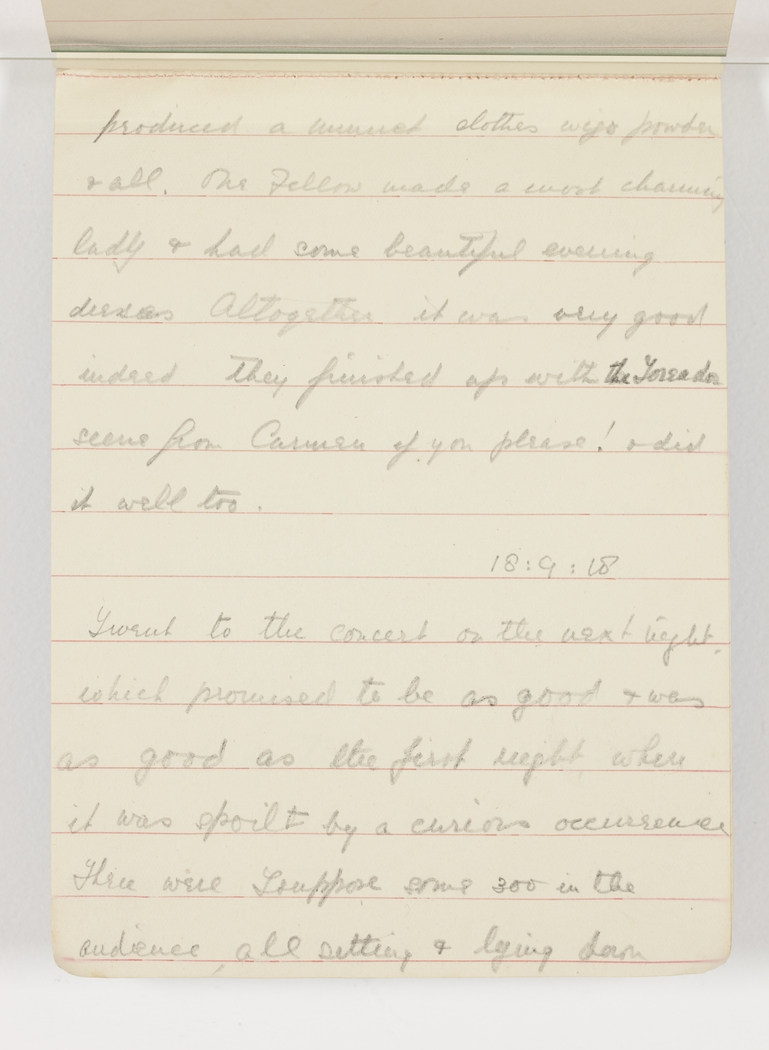 produced a minuet clothes wigs powder
& all. One Fellow made a most charming
lady & had some beautiful evening
dresses Altogether it was very good
indeed they finished up with the Toreador
scene from Carmen if you please! & did
it well too.
18:9:18
I went to the concert on the next night,
which promised to be as good & was
as good as the first night when
it was spoilt by a curious occurrence
There were I suppose some 300 in the
audience, all sitting & lying down